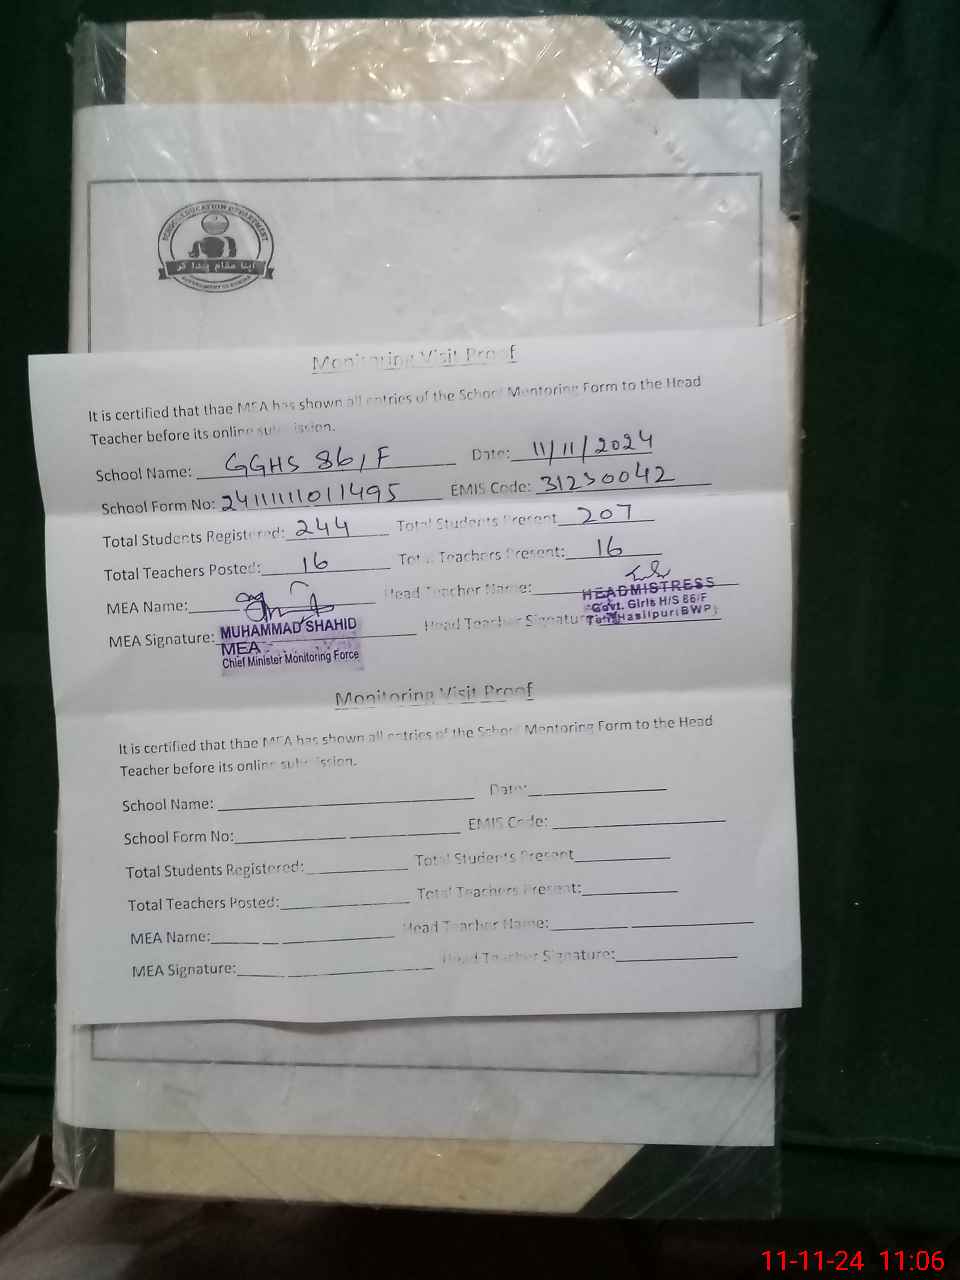 SCHOOL EDUCATION DEPARTMENT
اپنا مقام پیدا کر
GOVERNMENT OF PUNJAB
Monitoring Visit Proof
It is certified that thae MEA has shown all entries of the School Mentoring Form to the Head
Teacher before its online submission.
School Name: GGHS 86/F Date: 11/11/2024
School Form No: 2411111011495 EMIS Code: 31230042
Total Students Registered: 244 Total Students Present 207
Total Teachers Posted: 16 Total Teachers Present: 16
MEA Name: Head Teacher Name:
HEADMISTRESS
Govt. Girls H/S 86/F
Teh: Hasilpur (BWP)
MEA Signature: Head Teacher Signature:
MUHAMMAD SHAHID
MEA
Chief Minister Monitoring Force
Monitoring Visit Proof
It is certified that thae MEA has shown all entries of the School Mentoring Form to the Head
Teacher before its online submission.
School Name: Date:
School Form No: EMIS Code:
Total Students Registered: Total Students Present
Total Teachers Posted: Total Teachers Present:
MEA Name: Head Teacher Name:
MEA Signature: Head Teacher Signature:
11-11-24 11:06